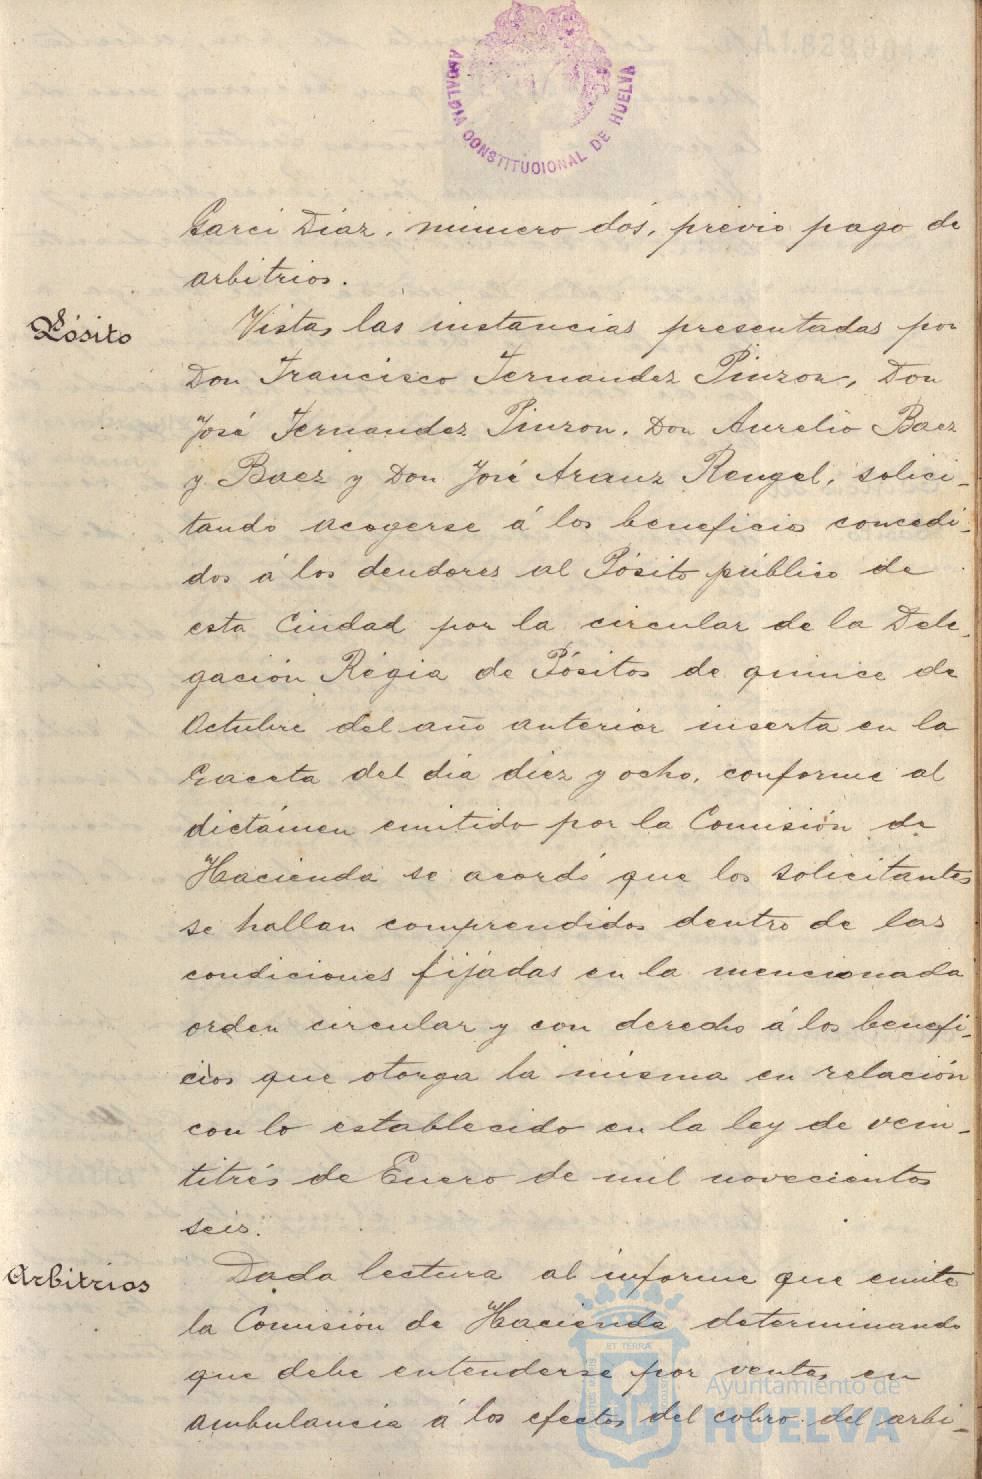 ALCALDIA CONSTITUCIONAL DE HUELVA
Garci Diaz, número dós, prévio pago de
arbitrios.
Pósito
Vistas las instancias presentadas por
Don Francisco Fernandez Pinzon, Don
José Fernandez Pinzon, Don Aurelio Baez
y Baez y Don José Aranz Rengel, solici-
tando acogerse á los beneficios concedi-
dos á los deudores al Pósito público de
esta Ciudad por la circular de la Dele-
gación Régia de Pósitos de quince de
Octubre del año anterior inserta en la
Gaceta del dia diez y ocho, conforme al
dictámen emitido por la Comisión de
Hacienda se acordó que los solicitantes
se hallan comprendidos dentro de las
condiciones fijadas en la mencionada
orden circular y con derecho á los benefi-
cios que otorga la misma en relación
con lo establecido en la ley de vein-
titrés de Enero de mil novecientos
seis.
Arbitrios
Dada lectura al informe que emite
la Comisión de Hacienda determinando
que debe entenderse por ventas en
ambulancia á los efectos del cobro del arbi-
Ayuntamiento de
HUELVA